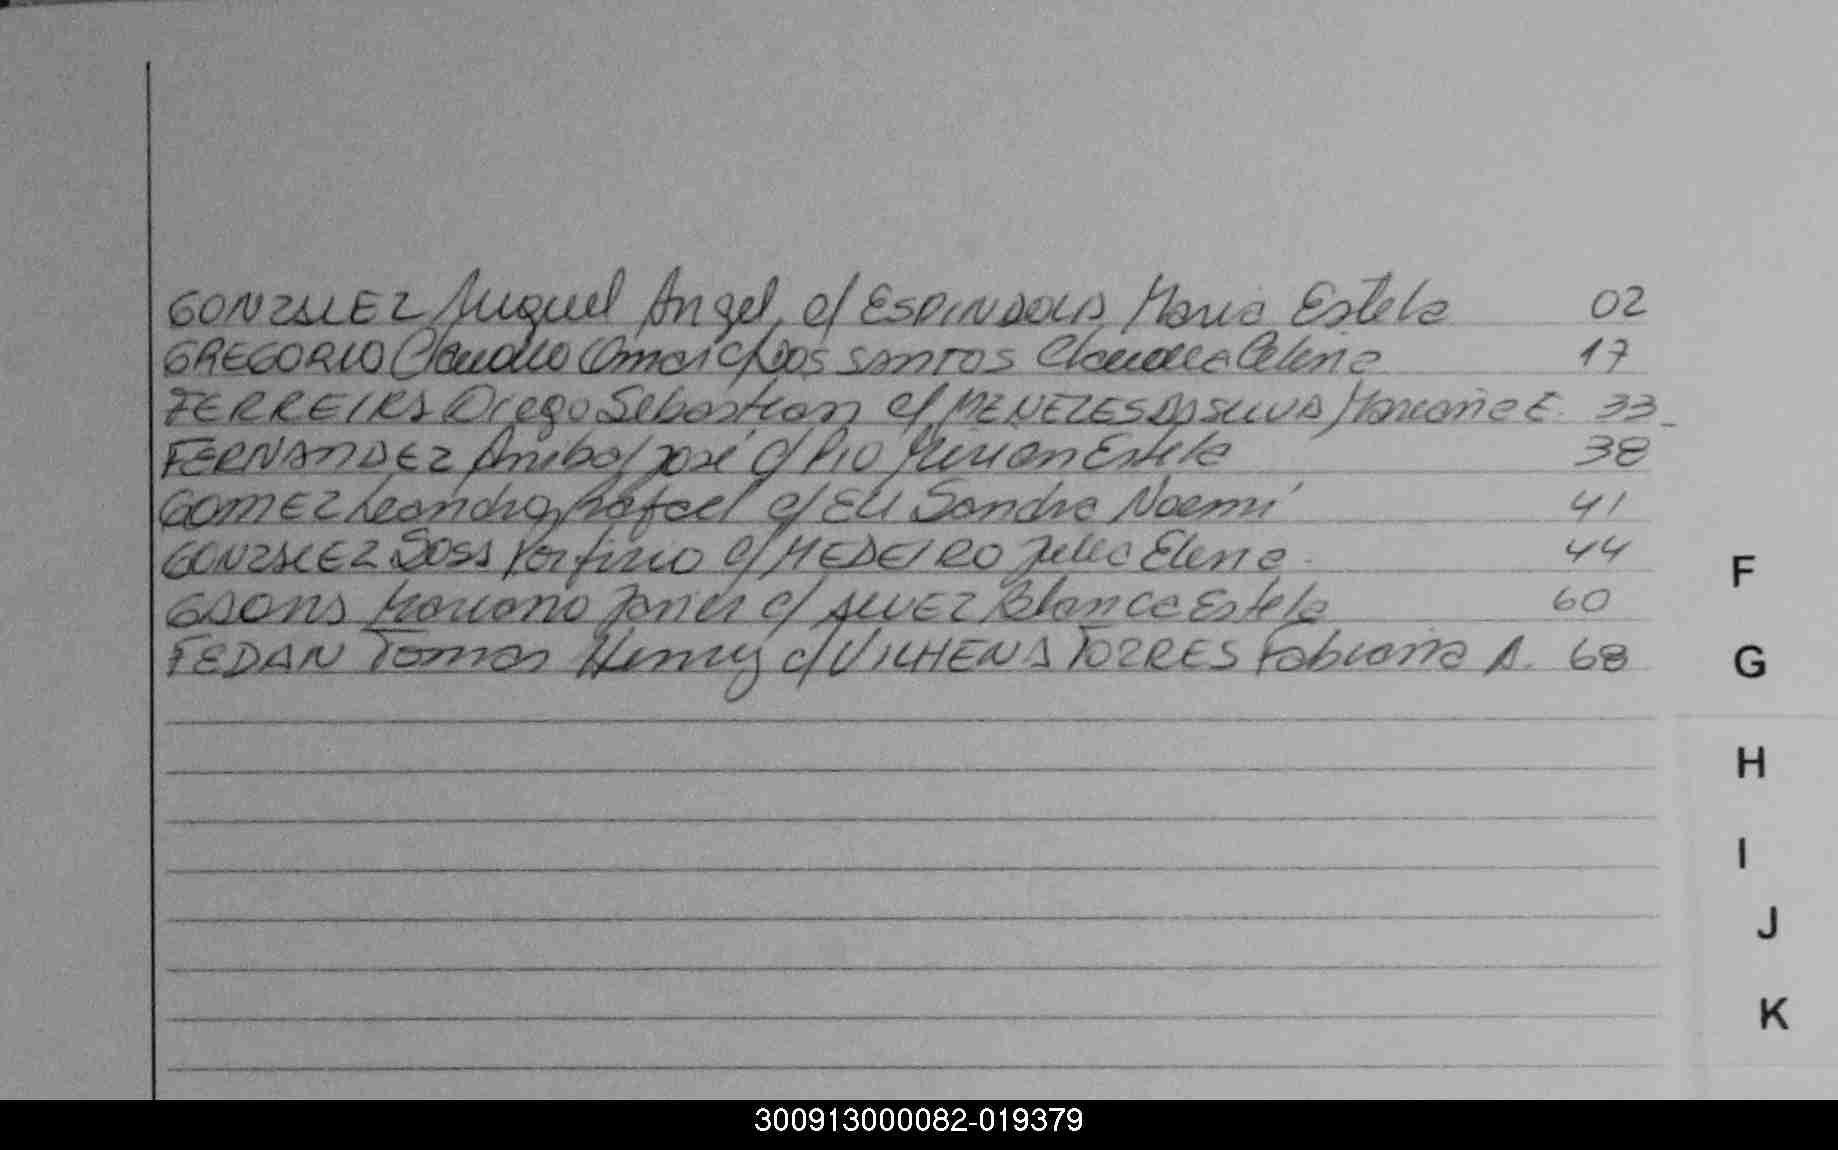 GONZALEZ Miguel Angel c/ ESPINDOLA Maria Estela 02
GREGORIO Claudio Omar c/ DOS SANTOS Claudia Celena 17
FERREIRA Diego Sebastian c/ MENEZES DA SILVA Mariana E. 33
FERNANDEZ Anibal José c/ PIO Miriam Estela 38
GOMEZ Leandro Rafael c/ ELI Sandra Noemí 41
GONZALEZ SOSA Porfirio c/ MEDEIRO Julia Elena 44
GAONA Mariano Javier c/ ALVEZ Blanca Estela 60
FEDAN Tomas Henry c/ VILHENA TORRES Fabiana A. 68
F
G
H
I
J
K
300913000082-019379